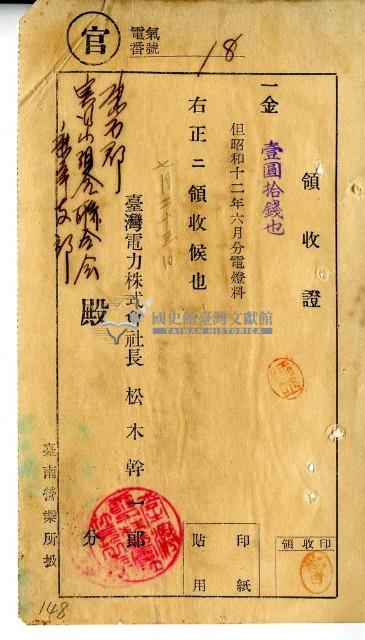 領收證
一金 壹圓拾錢也
但昭和十二年六月分電燈料
右正ニ領收候也
七月二十三日
臺灣電力株式會社長 松木幹一郎
殿
分
官
電氣
番號
18
印紙
貼用
領收印
臺南營業所扱
148
國史館臺灣文獻館
TAIWAN HISTORICA